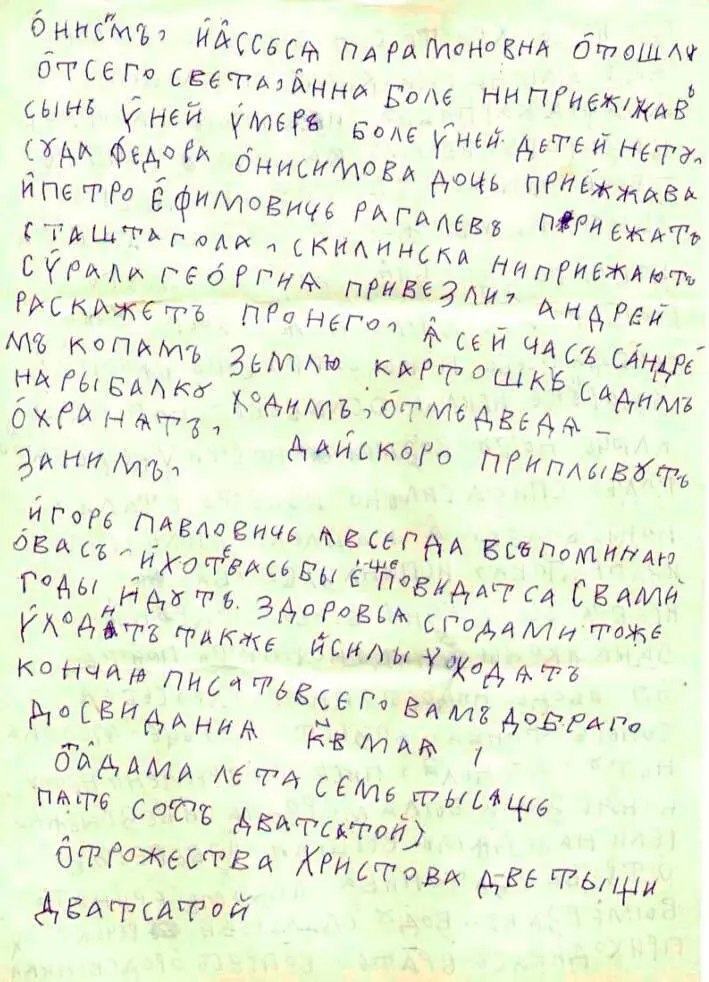 О́НИСИ́МЪ, И҆А҆ССЬСѦ ПАРАМОНОВНА О́ТОШЛꙊ
О҆ТСЕГО СВЕТА, А҆ННА БОЛЕ НИПРИЕЖЖАВЪ
СЫНЬ У҆НЕЙ У҆МЕРЪ БОЛЕ У҆НЕЙ ДЕТЕЙ НЕТУ,
СУДА ФЕДОРА О́НИСИМОВА ДОЧЬ ПРИЕ́ЖЖАВА
И҆ПЕТРО Е҆ФИМОВИЧЬ РАГАЛЕВЪ ПРИЕЖАТЬ
СТАШТАГОЛА, СКИЛИНСКА НИПРИЕЖАЮТЬ
СУ́РАЛА ГЕО́РГИѦ ПРИВЕЗЛИ, АНДРЕЙ
РАСКАЖЕТЪ ПРОНЕГО, Ѧ҆ СЕЙ ЧАСЪ СА́НДРЕ́
МЪ КОПАМЪ ЗЕМЛЮ КАРТОШКѢ САДИМЪ
НАРЫБАЛКꙊ ХОДИМЪ, О́ТМЕДВЕДА –
О́ХРАНАТЪ, ДАЙСКОРО ПРИПЛЫВꙊТЬ
ЗАНИМЪ,
И҆ГОРЕ ПАВЛОВИЧЬ ѦВСЕГДА ВСЪПОМИНАЮ
О҆ВАСЪ – И҆ХОТЕ́ВАСЬБЫ Е҆ЩЕ ПОВИДАТСА СВАМИ
ГОДЫ И҆ДꙊТЬ. ЗДОРОВЬА СГОДАМИ ТОЖЕ
У҆ХОДИТЪ ТАКЖЕ И҆СИЛЫ У҆ХОДАТЪ
КОНЧАЮ ПИСАТЬВСЕГО ВАМЪ ДОБРАГО
ДОСВИДАНИѦ К҃В МАѦ ,
О҆ТА҆ДАМА ЛЕТА СЕМЬ ТЫСѦЩЕ
ПАТЬ СОТЪ ДВАТСАТОЙ)
О҆ТРОЖЕСТВА ХРИСТОВА ДВЕ ТЫЩИ
ДВАТСАТОЙ